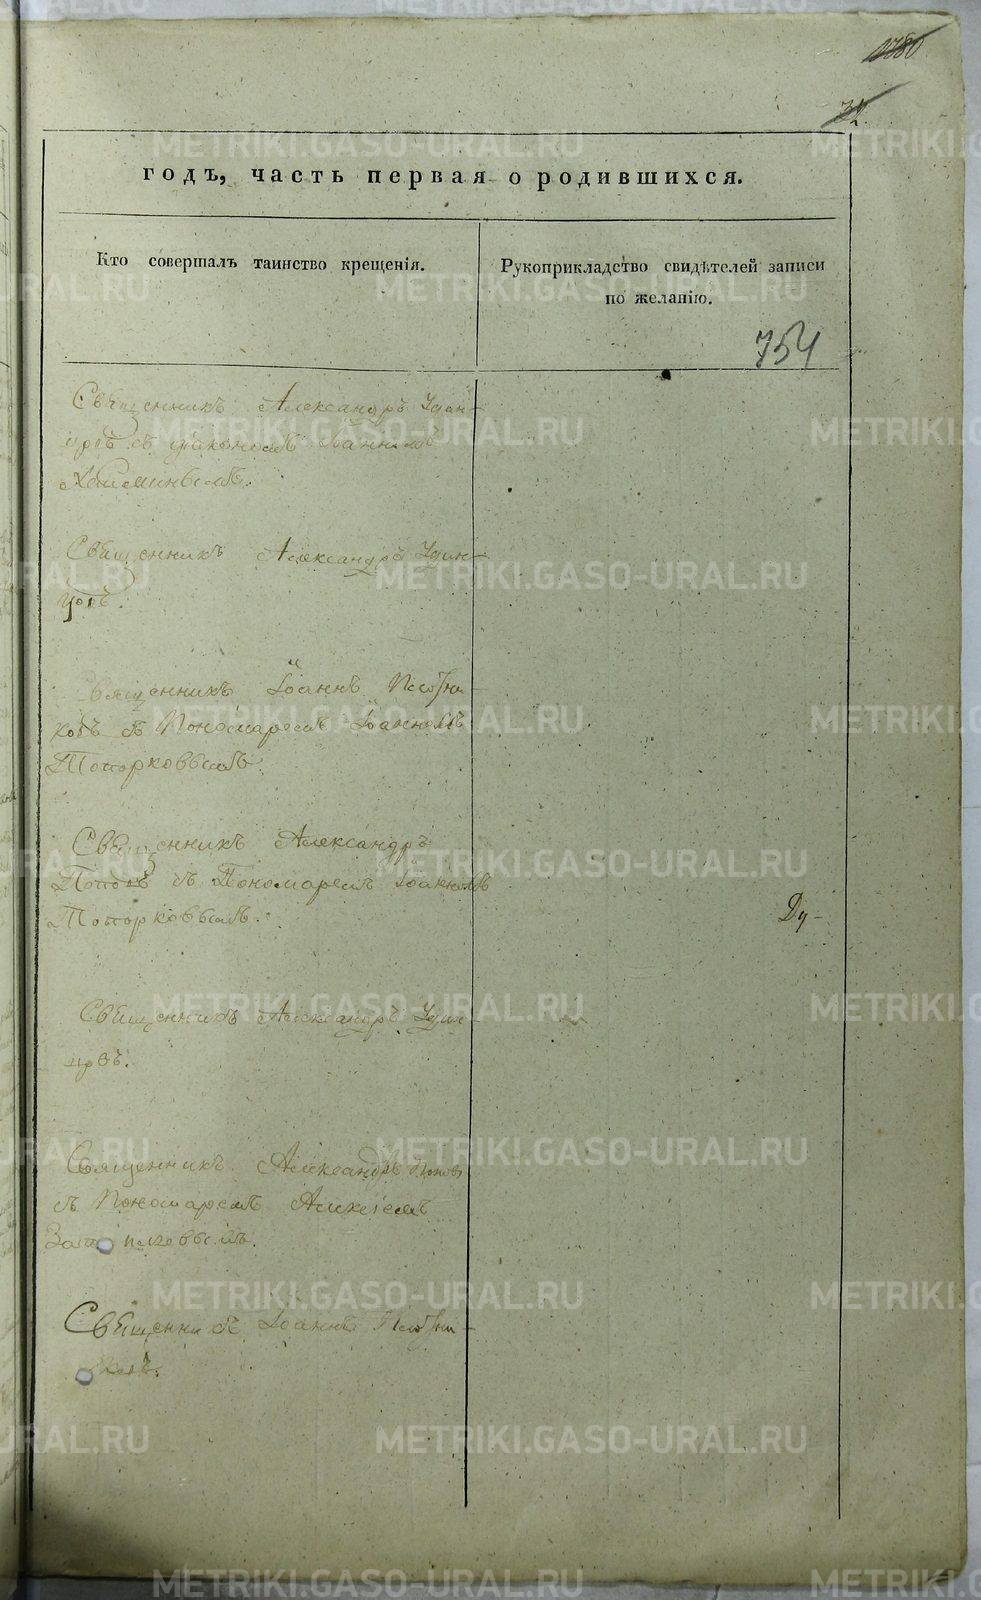 32
годъ, часть первая о родившихся.
Кто совершалъ таинство крещенія.
Рукоприкладство свидѣтелей записи
по желанію.
754
Священникъ Александръ Удин-
цовъ съ діакономъ Іоанномъ
Священникъ Александръ Удин-
цовъ.
Священникъ Іоаннъ Плотни-
ковъ съ Пономаремъ Іоанномъ
Топорковымъ.
Священникъ Александръ
Поповъ съ Пономаремъ Іоанномъ
Топорковымъ.
Ду-
Священникъ Александръ Удин-
цовъ.
Священникъ Александръ Поповъ
съ Пономаремъ Алексіемъ
Священникъ Іоаннъ Плотни-
ковъ.
METRIKI.GASO-URAL.RU